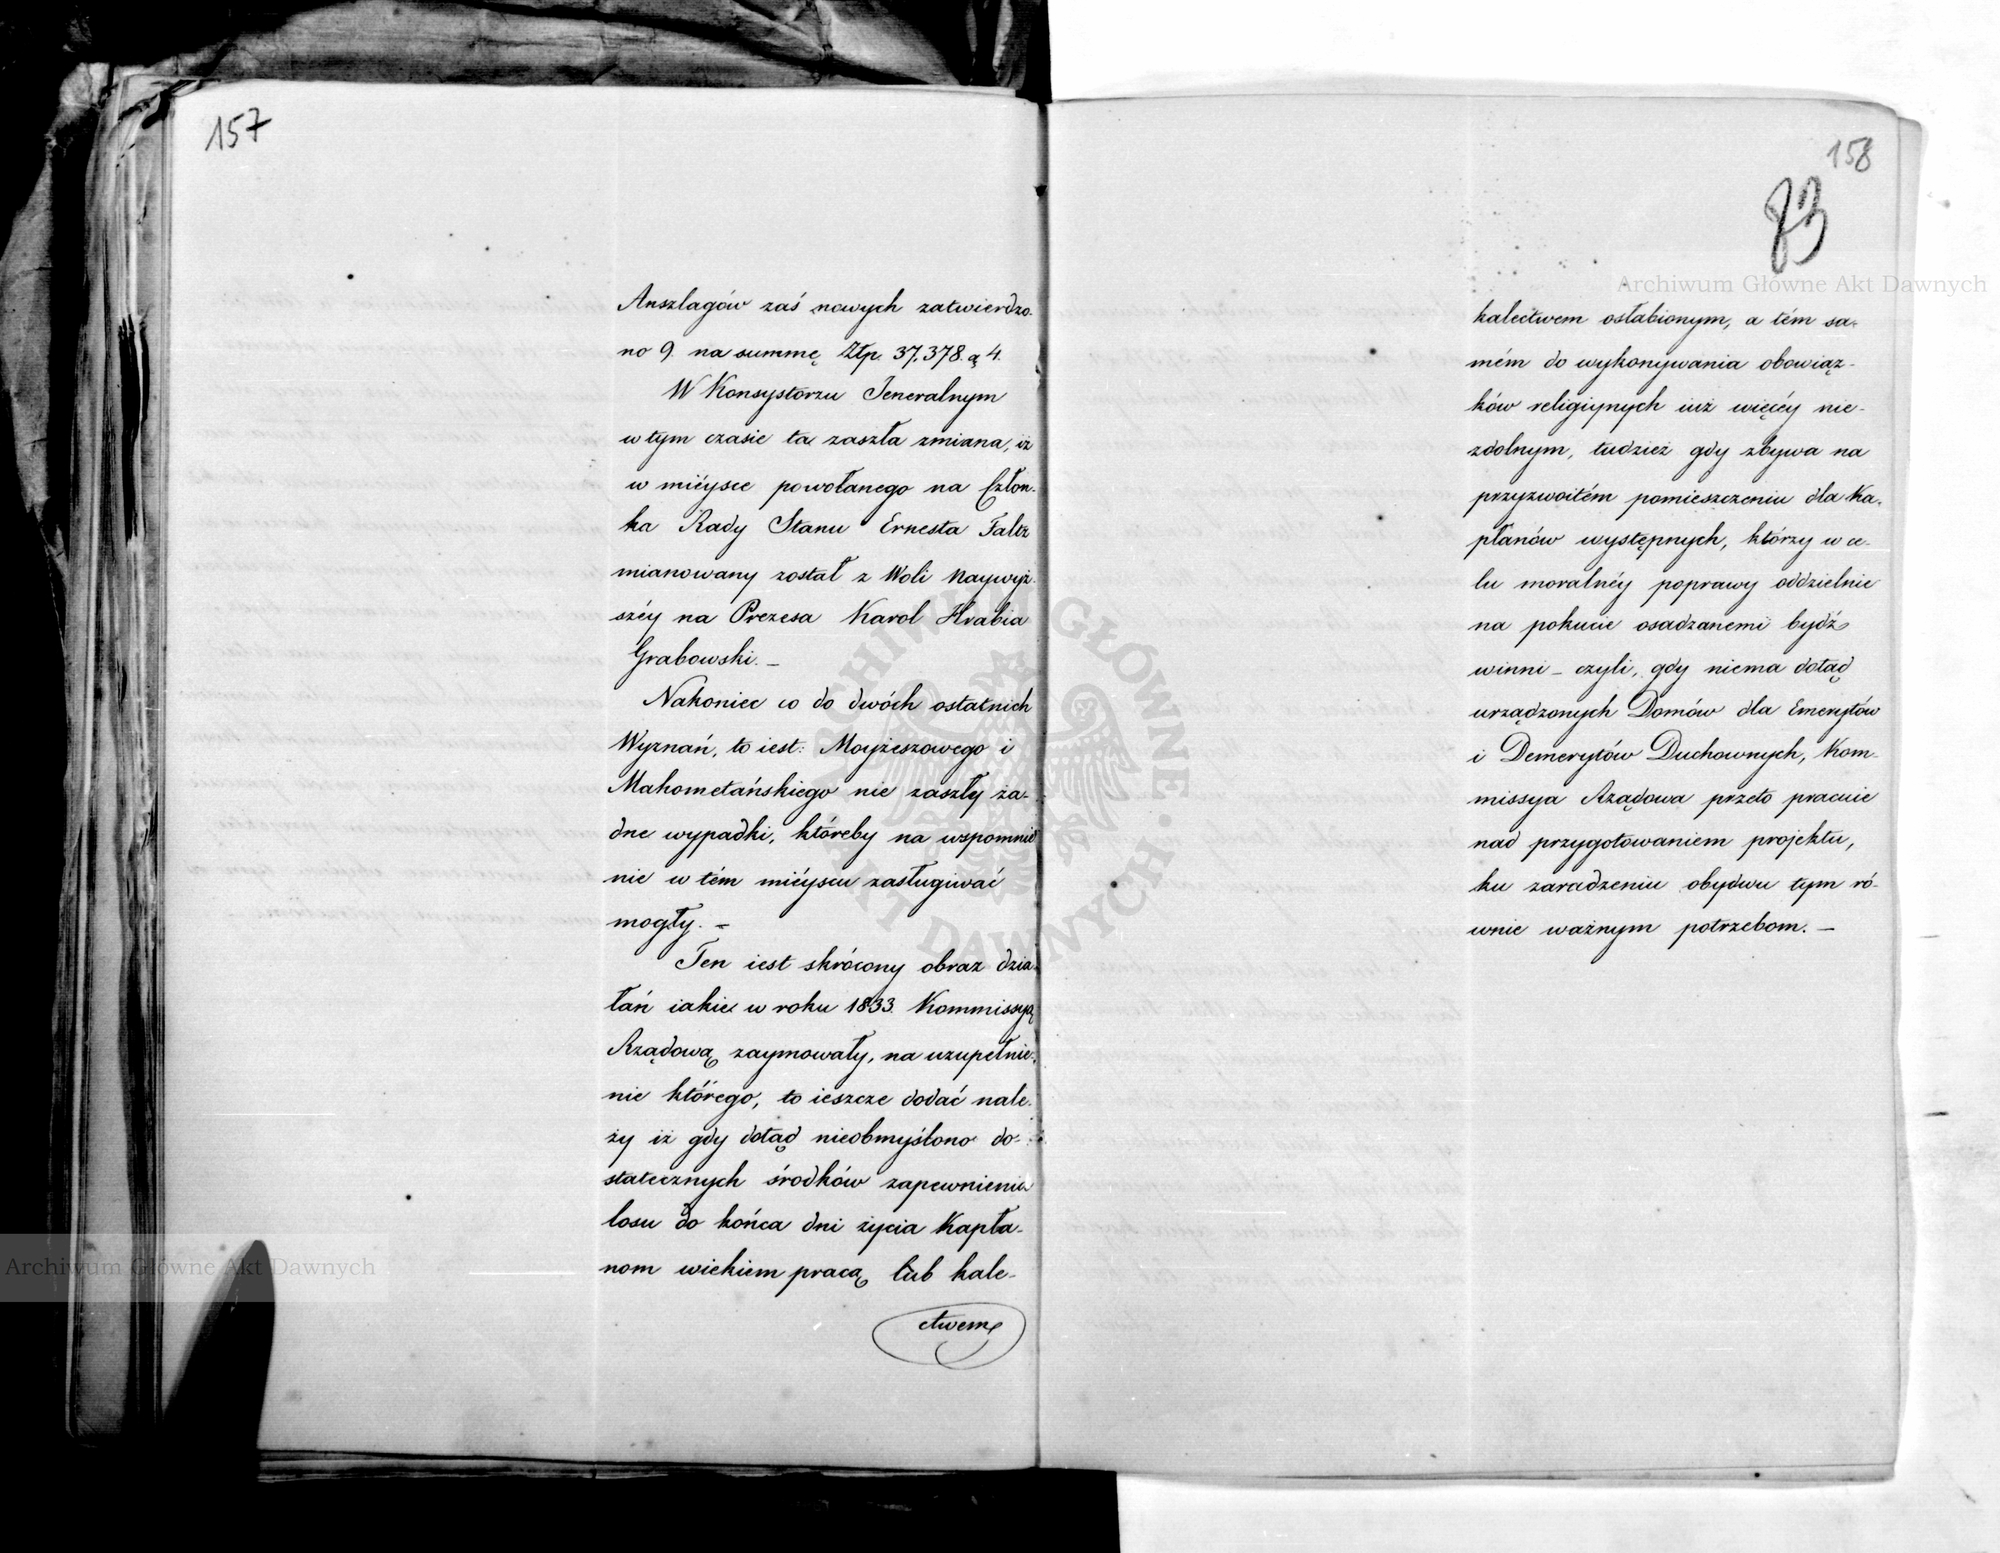 157
Anszlagów zaś nowych zatwierdzo-
no 9. na summę Złp. 37,378. g 4.
W Konsystorzu Jeneralnym
w tym czasie ta zaszła zmiana, iż
w mieysce powołanego na Człon-
ka Rady Stanu Ernesta Faltz
mianowany został z Woli Naywyż-
széy na Prezesa Karol Hrabia
Grabowski. –
Nakoniec co do dwóch ostatnich
Wyznań, to iest: Moyżeszowego i
Mahometańskiego nie zaszły ża-
dne wypadki, któreby na wspomnie
nie w tém miéyscu zasługiwać
mogły. –
Ten iest skrócony obraz dzia-
łań iakie w roku 1833. Kommissyą
Rządową zaymowały, na uzupełnie-
nie którego, to ieszcze dodać nale-
ży iż gdy dotąd nieobmyślono do-
statecznych środków zapewnienia
losu do końca dni życia Kapła-
nom wiekiem pracą lub kale-
ctwem
158
83
Archiwum Główne Akt Dawnych
kalectwem osłabionym, a tém sa-
mém do wykonywania obowiąz-
ków religiynych iuż więcéy nie-
zdolnym, tudzież gdy zbywa na
przyzwoitém pomieszczeniu dla Ka-
płanów występnych, którzy w ce-
lu moralnéy poprawy oddzielnie
na pokucie osadzanemi bydź
winni – czyli, gdy niema dotąd
urządzonych Domów dla Emerytów
i Demerytów Duchownych, Kom-
missya Rządowa przeto pracuie
nad przygotowaniem projektu,
ku zaradzeniu obydwu tym ró-
wnie ważnym potrzebom. –
ARCHIWUM GŁÓWNE AKT DAWNYCH
Archiwum Główne Akt Dawnych